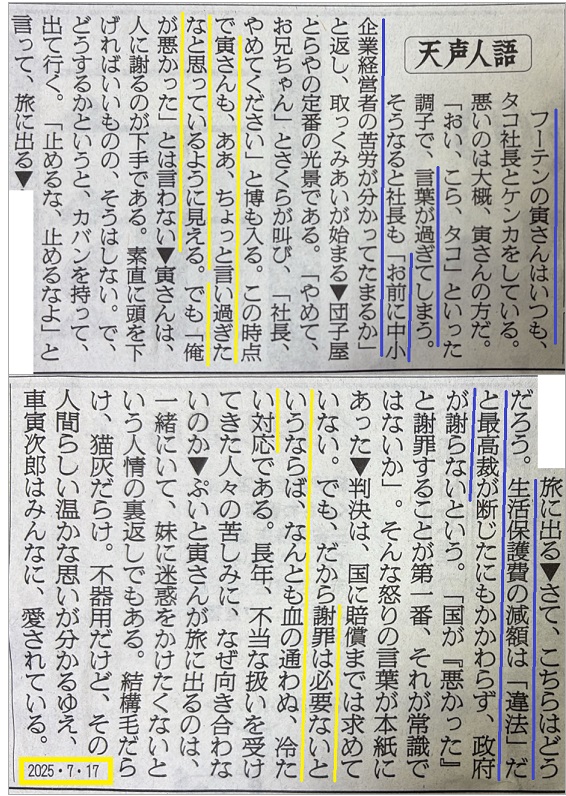 天声人語
フーテンの寅さんはいつも、
タコ社長とケンカをしている。
悪いのは大概、寅さんの方だ。
「おい、こら、タコ」といった
調子で、言葉が過ぎてしまう。
そうなると社長も「お前に中小
企業経営者の苦労が分かってたまるか」
と返し、取っくみあいが始まる▼団子屋
とらやの定番の光景である。「やめて、
お兄ちゃん」とさくらが叫び、「社長、
やめてください」と博も入る。この時点
で寅さんも、ああ、ちょっと言い過ぎた
なと思っているように見える。でも「俺
が悪かった」とは言わない▼寅さんは、
人に謝るのが下手である。素直に頭を下
げればいいものの、そうはしない。で、
どうするかというと、カバンを持って、
出て行く。「止めるな、止めるなよ」と
言って、旅に出る▼
旅に出る▼さて、こちらはどう
だろう。生活保護費の減額は「違法」だ
と最高裁が断じたにもかかわらず、政府
が謝らないという。「国が『悪かった』
と謝罪することが第一番、それが常識で
はないか」。そんな怒りの言葉が本紙に
あった▼判決は、国に賠償までは求めて
いない。でも、だから謝罪は必要ないと
いうならば、なんとも血の通わぬ、冷た
い対応である。長年、不当な扱いを受け
てきた人々の苦しみに、なぜ向き合わな
いのか▼ぷいと寅さんが旅に出るのは、
一緒にいて、妹に迷惑をかけたくないと
いう人情の裏返しでもある。結構毛だら
け、猫灰だらけ。不器用だけど、その
人間らしい温かな思いが分かるゆえ、
車寅次郎はみんなに、愛されている。
2025・7・17